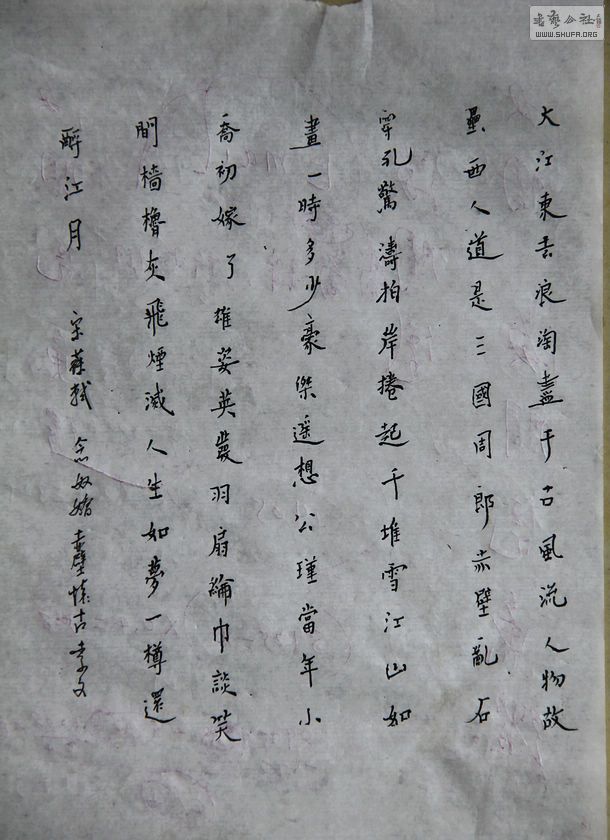 大江東去浪淘盡千古風流人物故
壘西人道是三國周郎赤壁亂石
穿孔驚濤拍岸捲起千堆雪江山如
畫一時多少豪傑遥想公瑾當年小
喬初嫁了雄姿英發羽扇綸巾談笑
間檣櫓灰飛煙滅人生如夢一樽還
酹江月 宋蘇軾 念奴嬌 赤壁懷古
書藝公社
WWW.SHUFA.ORG